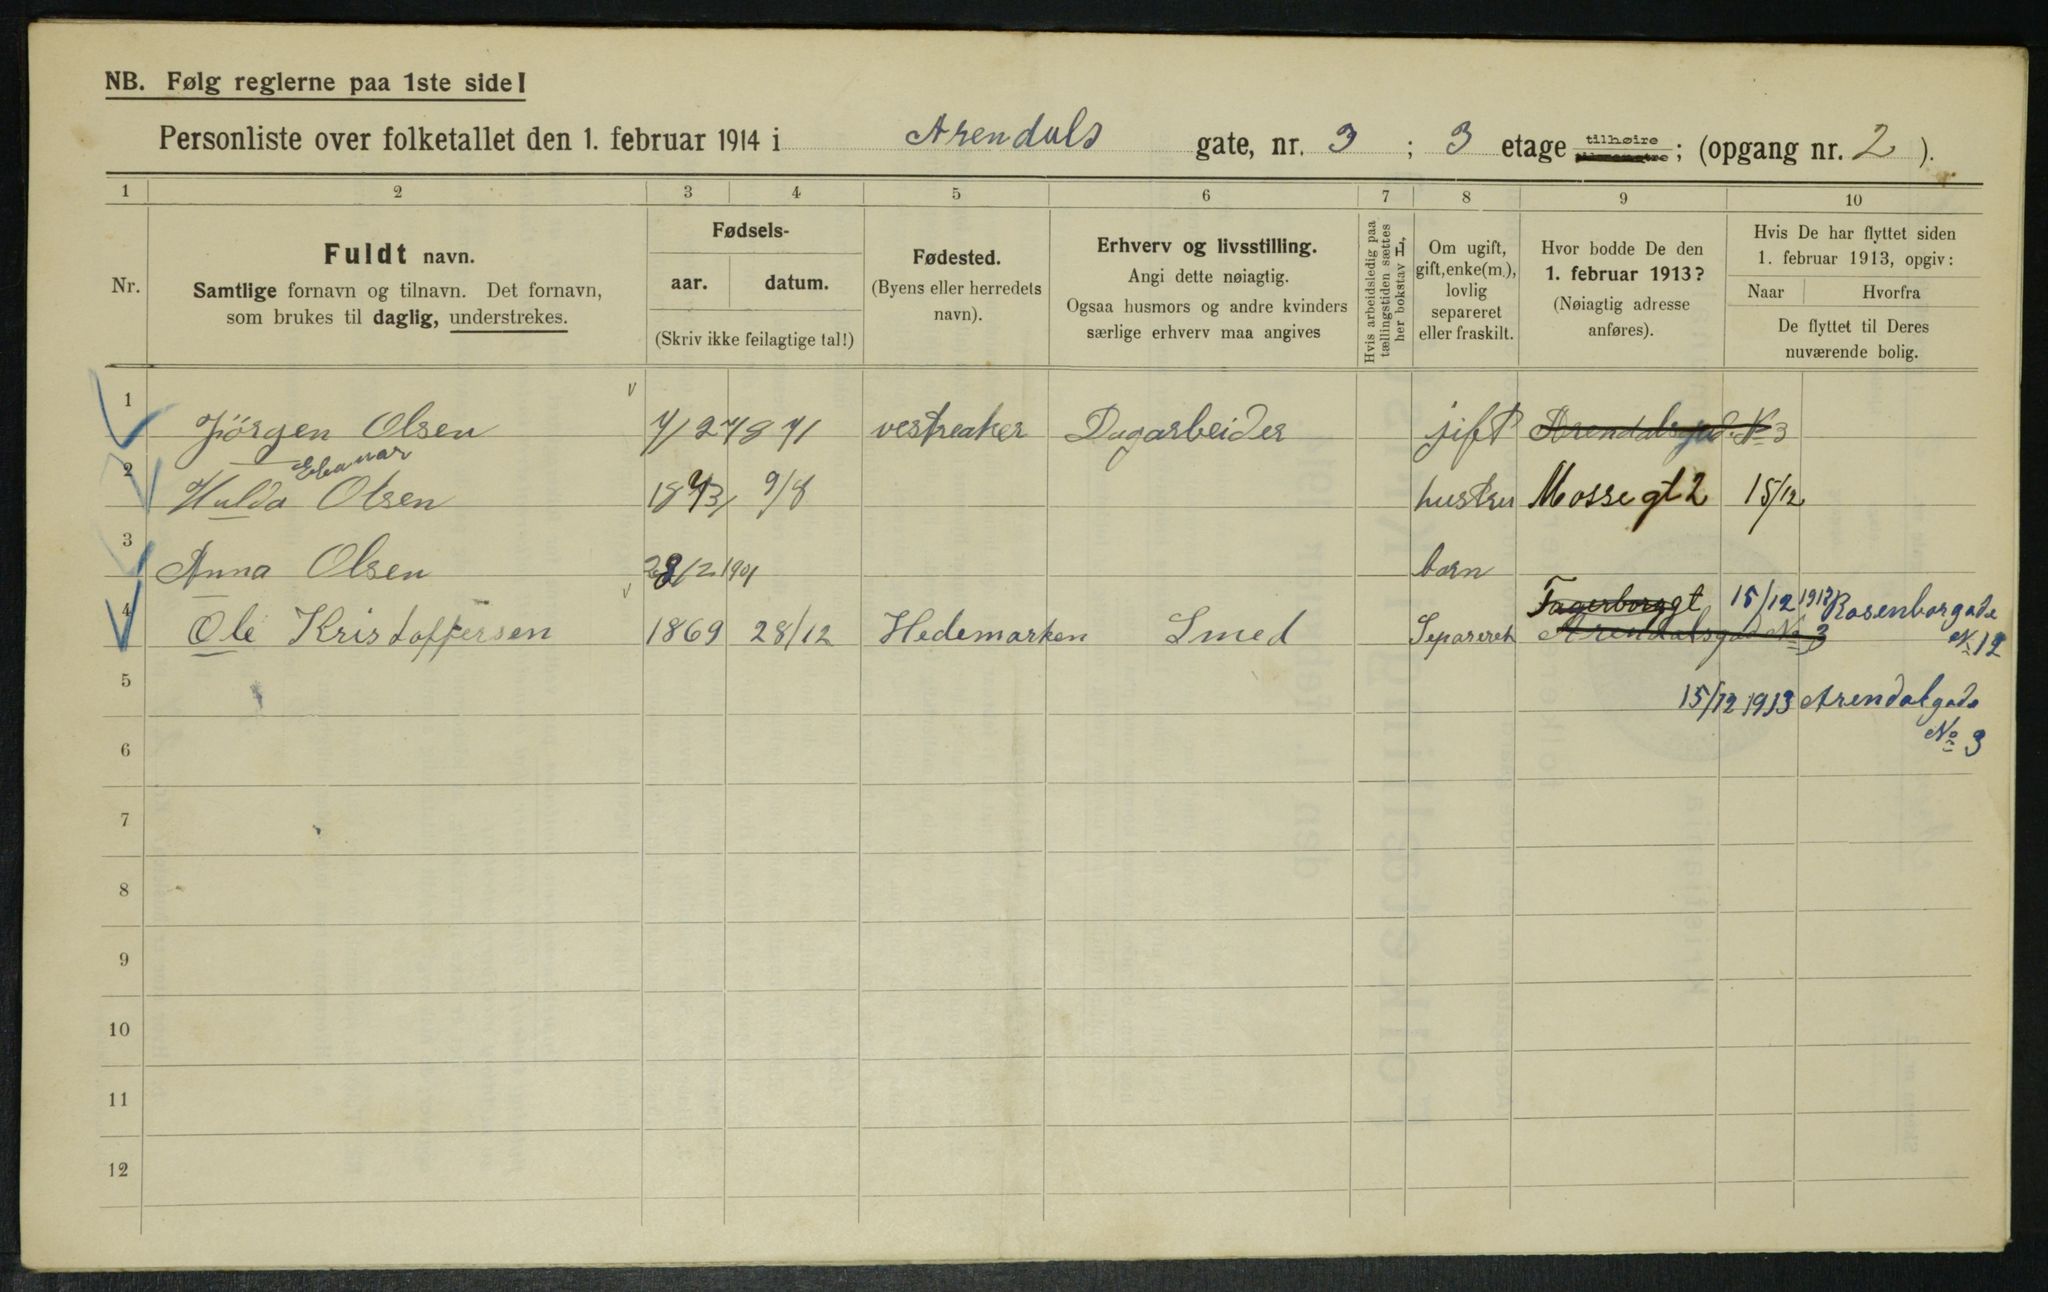 NB. Følg reglerne paa 1ste side!
Personliste over folketallet den 1. februar 1914 i Arendals gate, nr. 3 ; 3 etage tilhøire ; (opgang nr. 2 ).
1 2 3 4 5 6 7 8 9 10
Nr.
Fuldt navn.
Samtlige fornavn og tilnavn. Det fornavn,
som brukes til daglig, understrekes.
Fødsels-
aar. datum.
(Skriv ikke feilagtige tal!)
Fødested.
(Byens eller herredets
navn).
Erhverv og livsstilling.
Angi dette nøiagtig.
Ogsaa husmors og andre kvinders
særlige erhverv maa angives
Hvis arbeidsledig paa
tællingstiden sættes
her bokstav L,
Om ugift,
gift, enke(m.),
lovlig
separeret
eller fraskilt.
Hvor bodde De den
1. februar 1913?
(Nøiagtig adresse
anføres).
Hvis De har flyttet siden
1. februar 1913, opgiv:
Naar Hvorfra
De flyttet til Deres
nuværende bolig.
1 Jørgen Olsen 7/12 1871 vestreaker Dagarbeider jift Arendalsgad. No 3
2 Hulda Olsen 1873 9/8 hustru Mossegt 2 15/12
3 Anna Olsen 28/2 1901 barn
Fagerborggt 15/12 1913 Rosenborgade
4 Ole Kristoffersen 1869 28/12 Hedemarken Smed Separeret Arendalsgad No 3 No 12
5 15/12 1913 Arendalgade
6 No 3
7
8
9
10
11
12